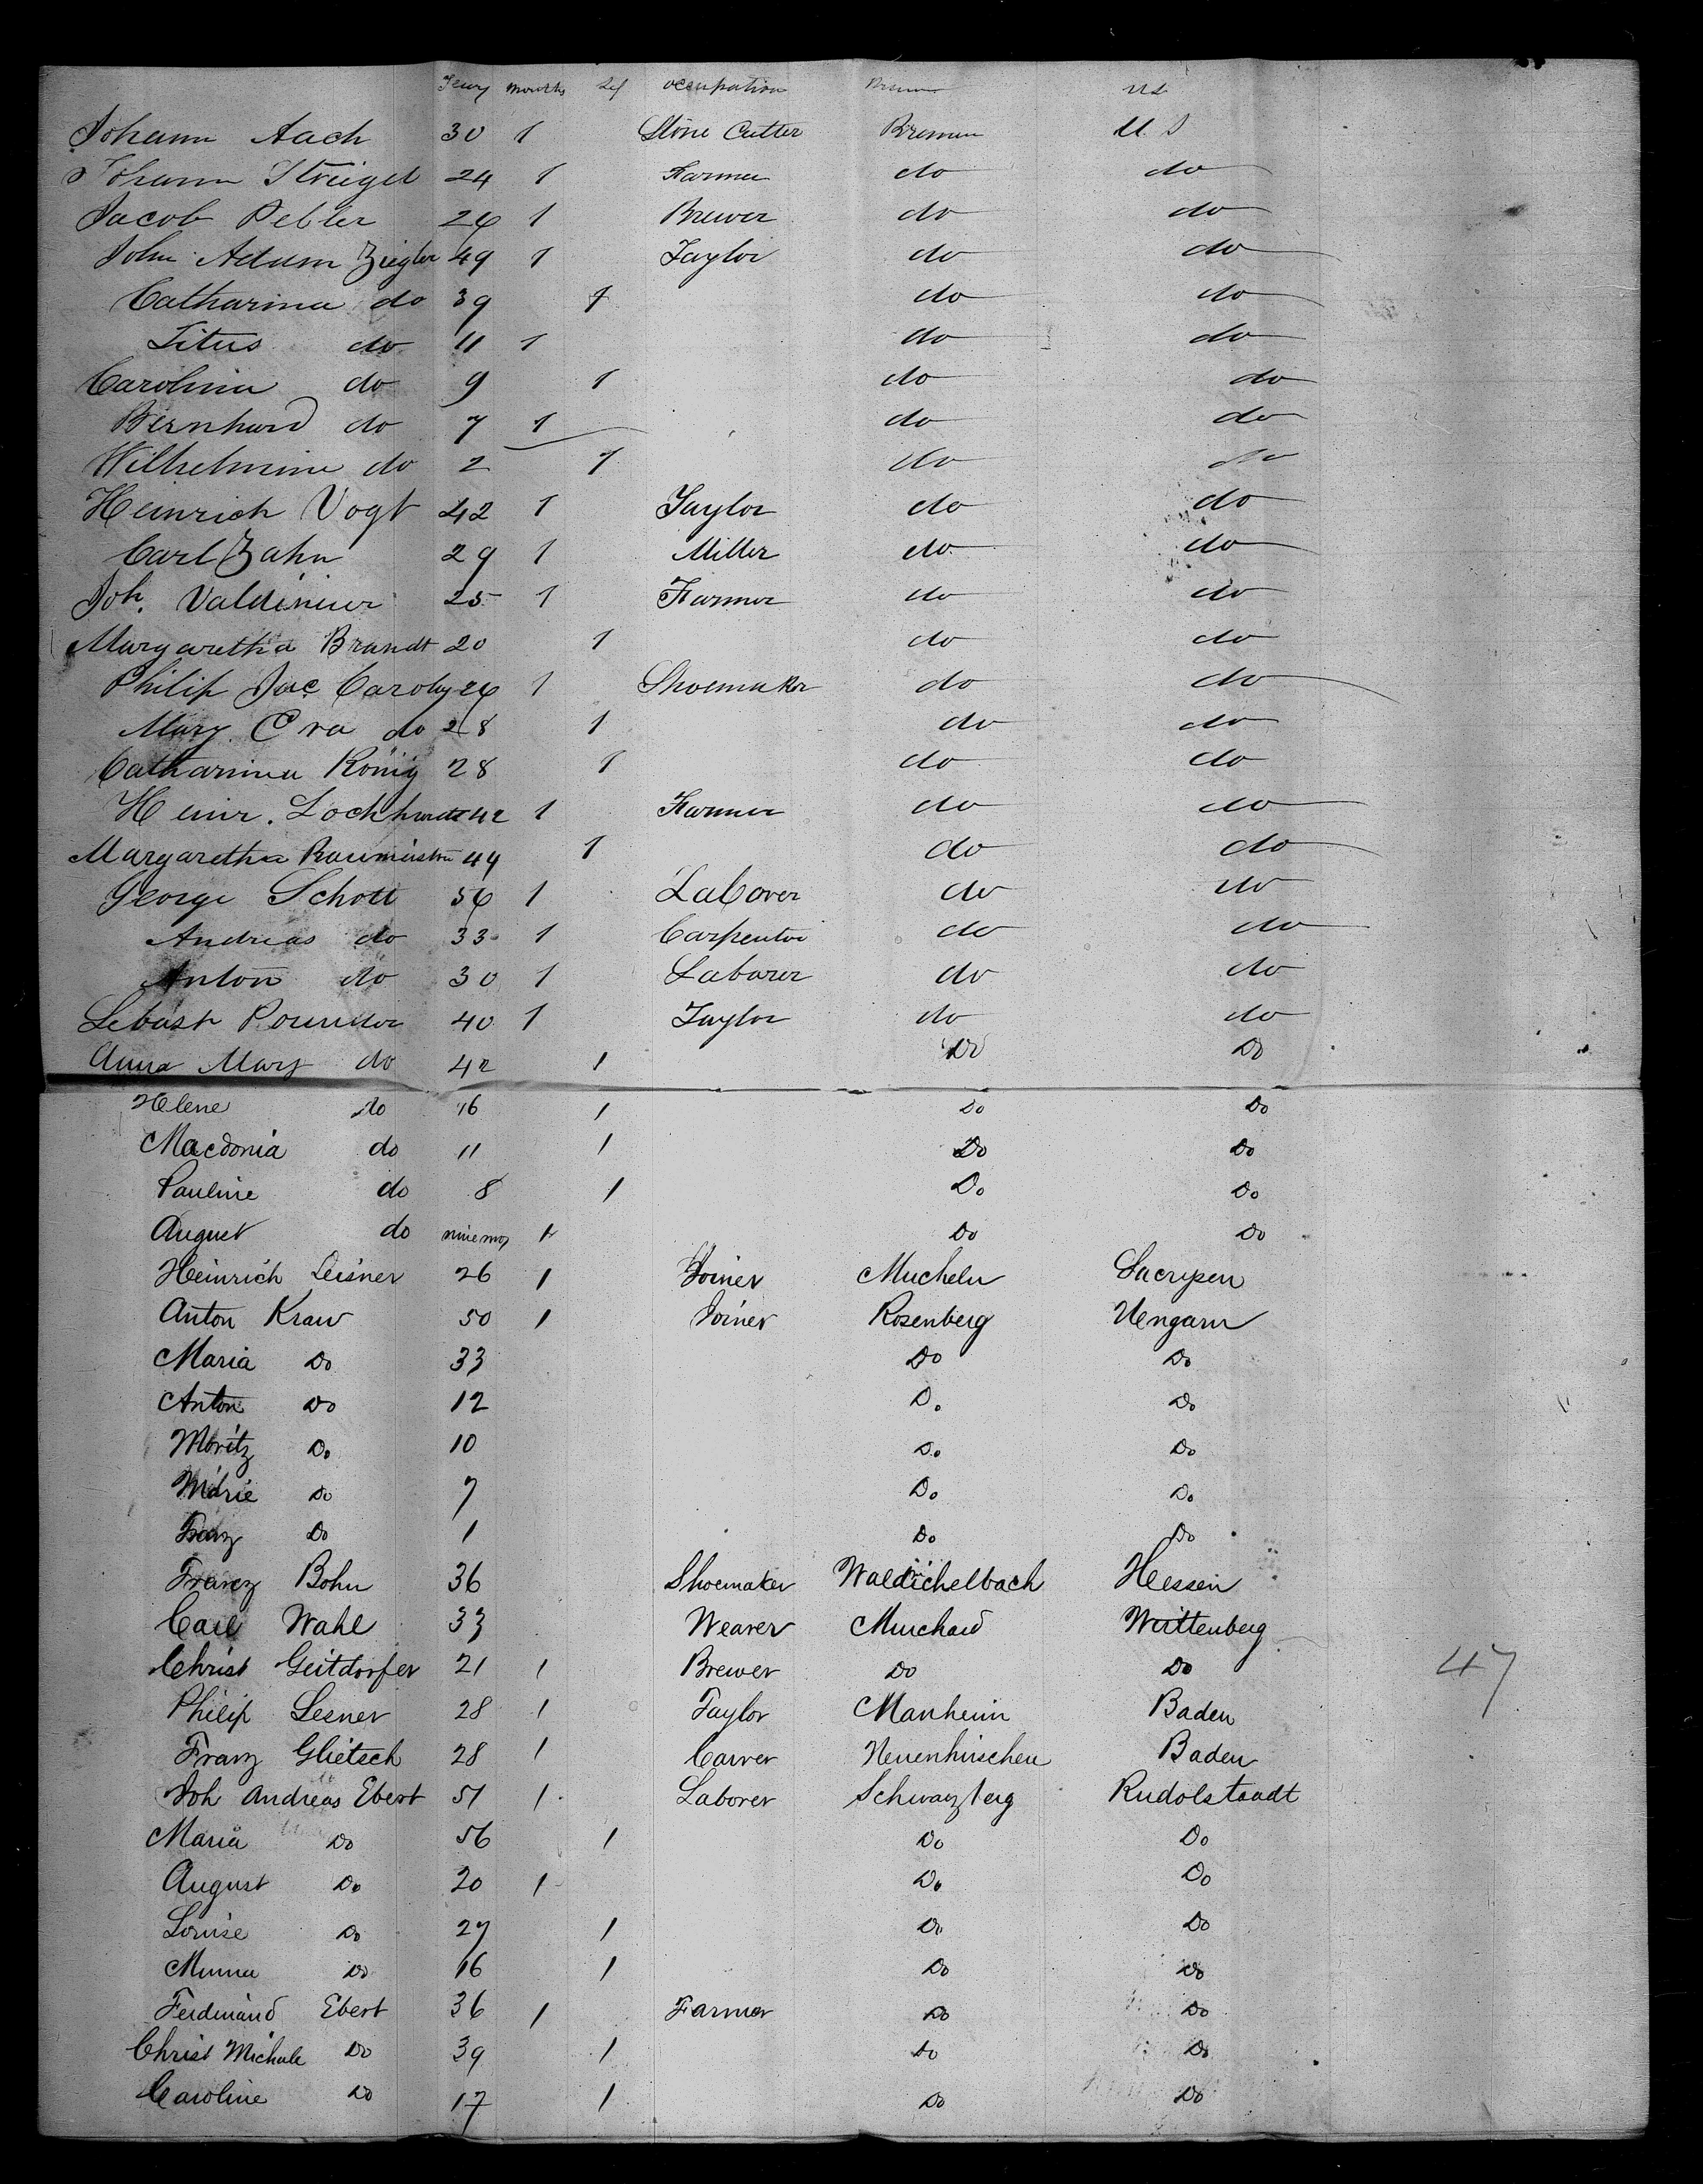 Years months Sex occupation Bremen US
Johann Aach 30 1 Stone Cutter Bremen U. S
Johann Streigel 24 1 Farmer do do
Jacob Pebler 26 1 Brewer do do
John Adam Ziegler 49 1 Taylor do do
Catharina do 39 1 do do
Titus do 11 1 do do
Carolina do 9 1 do do
Bernhard do 7 1 do do
Wilhelmine do 2 1 do do
Heinrich Vogt 42 1 Taylor do do
Carl Zahn 29 1 Miller do do
Joh. 25 1 Farmer do do
Margaretha Brandt 20 1 do do
Philip Jac Caroly 26 1 Shoemaker do do
Mary Eva do 28 1 do do
Catharina König 28 1 do do
Heinr. Lochhardt 42 1 Farmer do do
Margaretha Baumeister 44 1 do do
George Schott 56 1 Laborer do do
Andreas do 33 1 Carpenter do do
Anton do 30 1 Laborer do do
Sebast 40 1 Taylor do do
Anna Mary do 42 1 Do Do
Helene do 16 1 Do Do
Macdonia do 11 1 Do Do
Pauline do 8 1 Do Do
August do nine mos 1 Do Do
Heinrich Leisner 26 1 Joiner Mucheln Sacrysen
Anton Kraw 50 1 Joiner Rosenberg Uengarn
Maria Do 33 Do Do
Anton Do 12 Do Do
Moritz Do 10 Do Do
Marie Do 7 Do Do
Franz Do 1 Do Do
Franz Bohn 36 Shoemaker Waldmichelbach Hessen
Carl Wahl 33 Weaver Murchard Wirttenberg
Christ Geitdorfer 21 1 Brewer Do Do 47
Philip Lesner 28 1 Taylor Manheim Baden
Franz Glietsch 28 1 Carver Neuenkirschen Baden
Joh Andreas Ebert 51 1 Laborer Schwarzberg Rudolstaadt
Maria Do 56 1 Do Do
August Do 20 1 Do Do
Louise Do 27 1 Do Do
Minna Do 16 1 Do Do
Ferdinand Ebert 36 1 Farmer Do Do
Christ Michale Do 39 1 Do Do
Caroline Do 17 1 Do Do